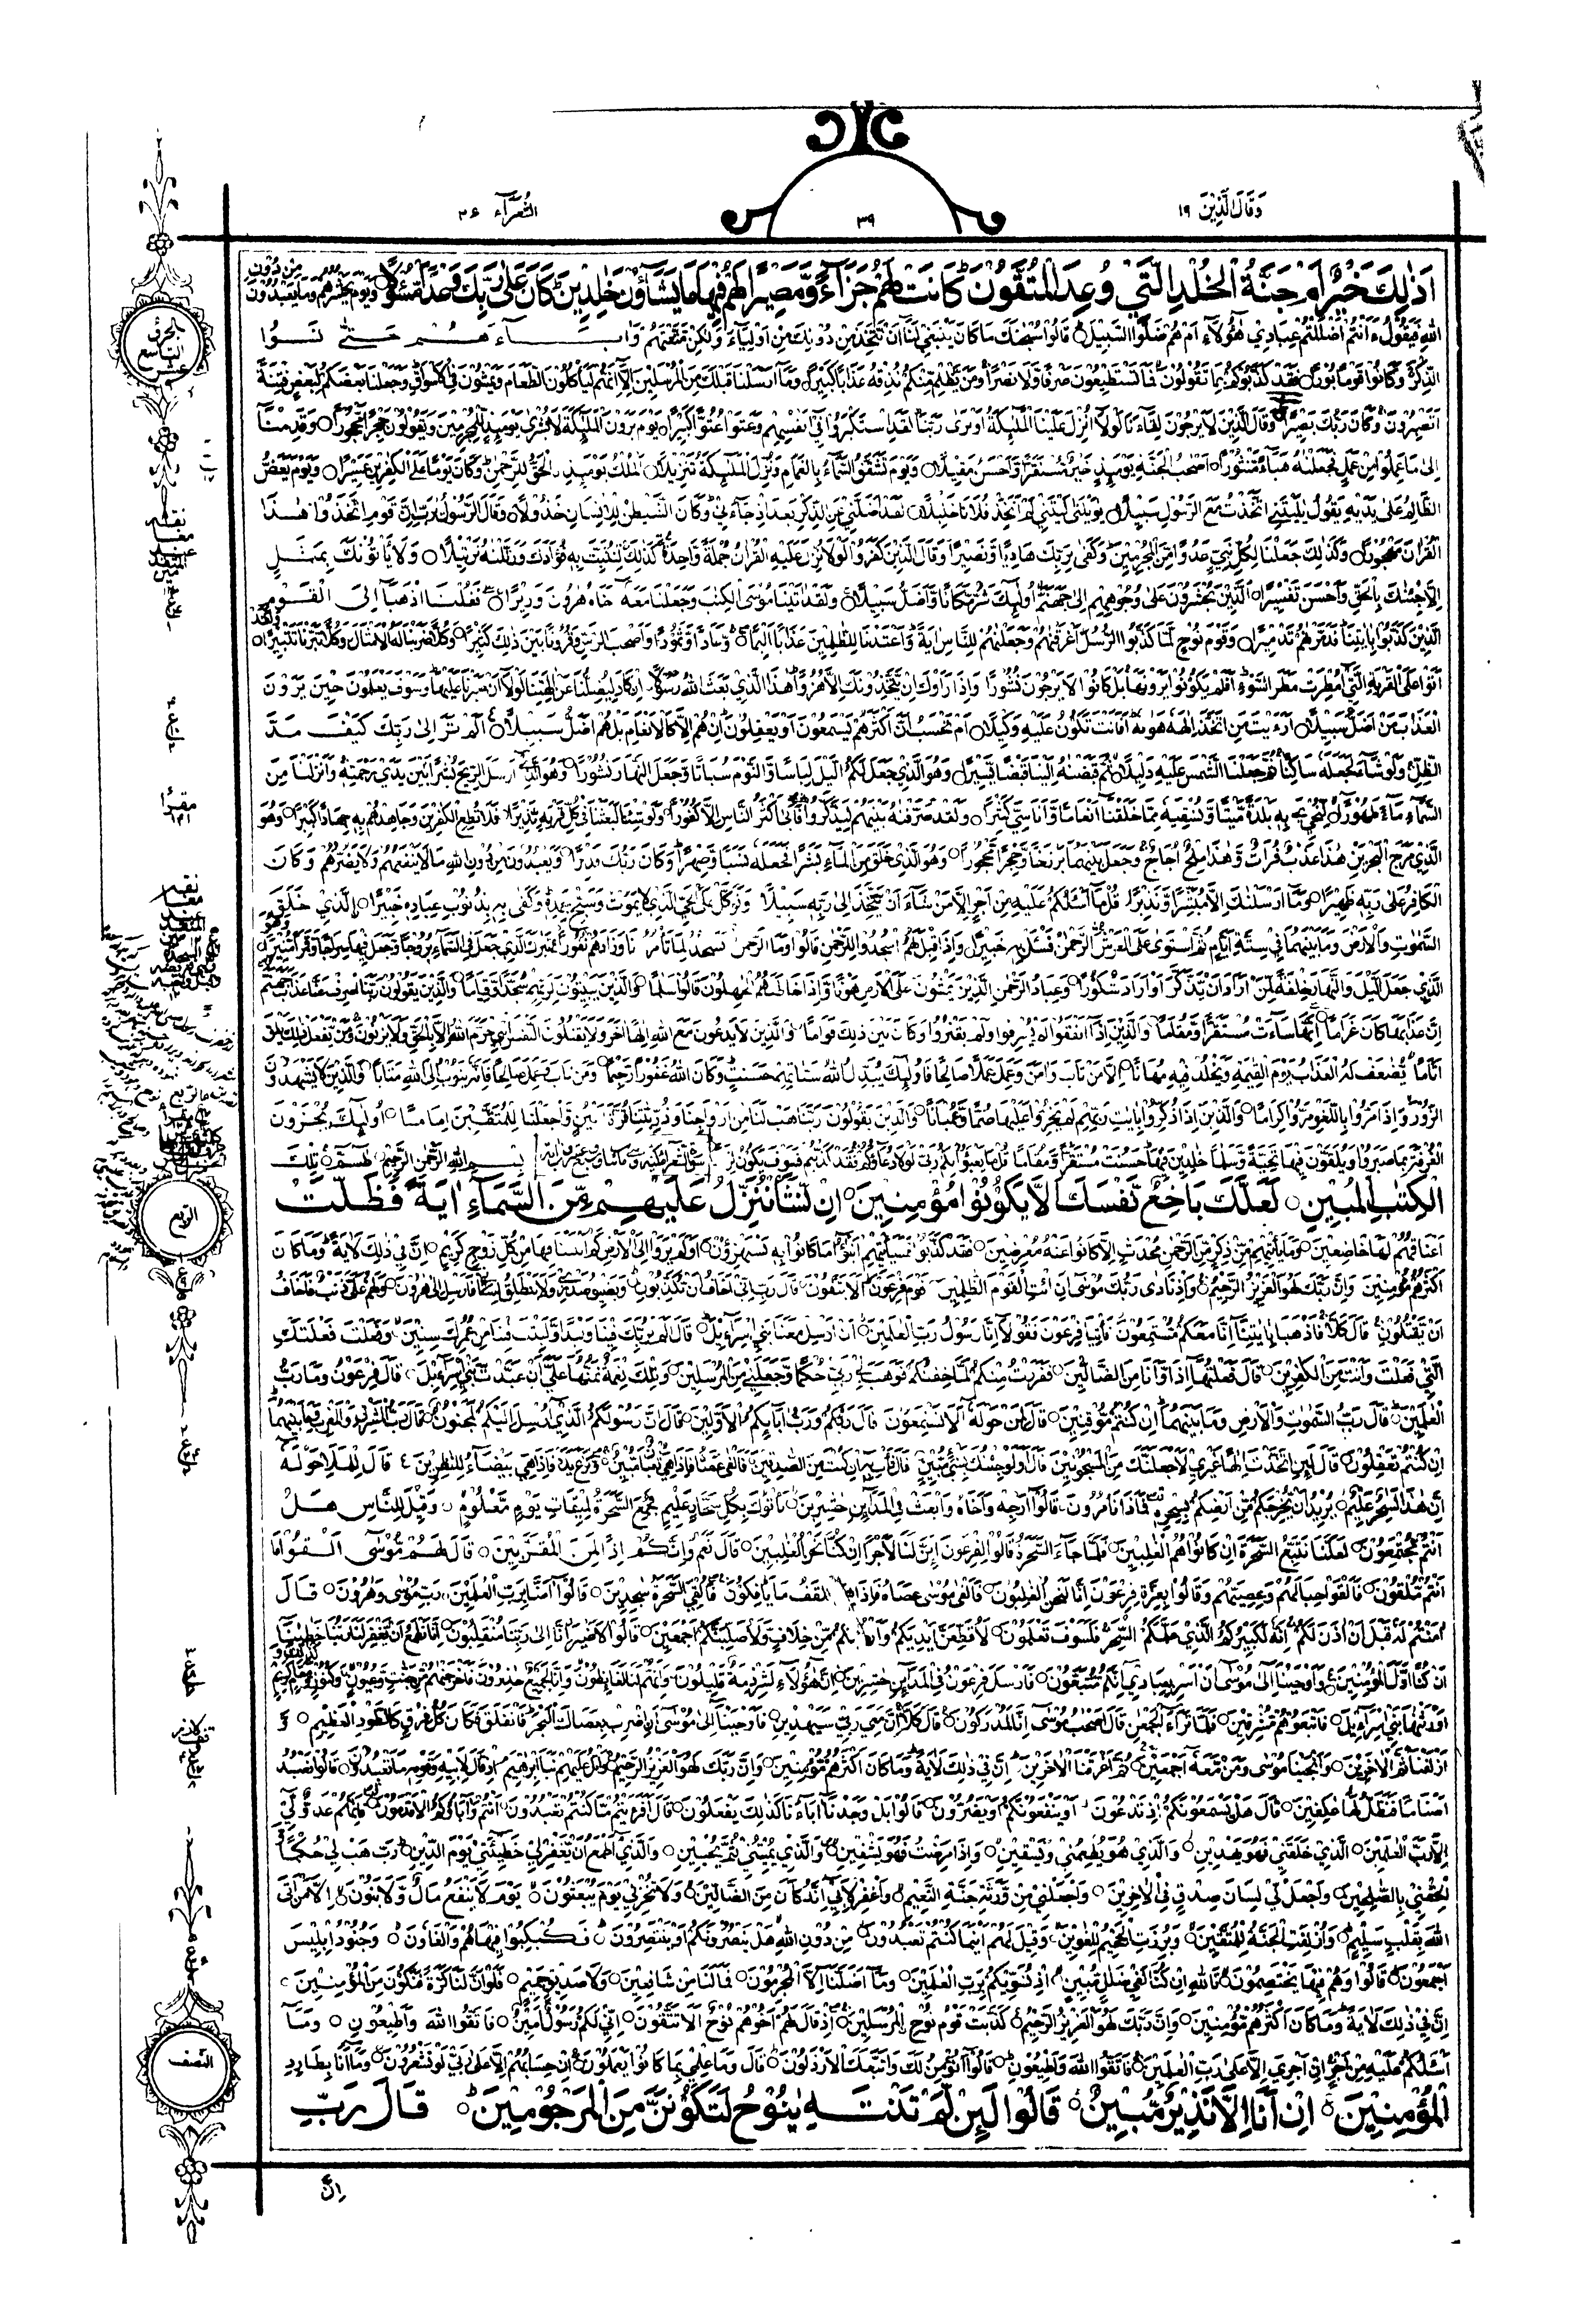 وقال الذین ۱۹
۳۹
الشعرآء ۲۶
اذلك خير ام جنة الخلد التي وعد المتقون كانت لهم جزآء ومصيرا لهم فيها ما يشآؤن خلدين كان على ربك وعدا مسئولا ويوم يحشرهم وما يعبدون من دون
الله فيقول ءانتم اضللتم عبادي هؤلآء ام هم ضلوا السبيل قالوا سبحنك ما كان ينبغي لنآ ان نتخذ من دونك من اوليآء ولكن متعتهم وابآءهم حتى نسوا
الذكر وكانوا قوما بورا فقد كذبوكم بما تقولون فما تستطيعون صرفا ولا نصرا ومن يظلم منكم نذقه عذابا كبيرا ومآ ارسلنا قبلك من المرسلين الآ انهم لياكلون الطعام ويمشون في الاسواق وجعلنا بعضكم لبعض فتنة
اتصبرون وكان ربك بصيرا وقال الذين لا يرجون لقآءنا لولآ انزل علينا الملئكة او نرى ربنا لقد استكبروا في انفسهم وعتو عتوا كبيرا يوم يرون الملئكة لا بشرى يومئذ للمجرمين ويقولون حجرا محجورا وقدمنآ
الى ما عملوا من عمل فجعلنه هبآء منثورا اصحب الجنة يومئذ خير مستقرا واحسن مقيلا ويوم تشقق السمآء بالغمام ونزل الملئكة تنزيلا الملك يومئذ الحق للرحمن وكان يوما على الكفرين عسيرا ويوم يعض
الظالم على يديه يقول يليتني اتخذت مع الرسول سبيلا يويلتى ليتني لم اتخذ فلانا خليلا لقد اضلني عن الذكر بعد اذ جآءني وكان الشيطن للانسان خذولا وقال الرسول يرب ان قومي اتخذوا هذا
القران مهجورا وكذلك جعلنا لكل نبي عدوا من المجرمين وكفى بربك هاديا ونصيرا وقال الذين كفروا لولا نزل عليه القران جملة واحدة كذلك لنثبت به فؤادك ورتلنه ترتيلا ولا ياتونك بمثل
الا جئنك بالحق واحسن تفسيرا الذين يحشرون على وجوههم الى جهنم اولئك شر مكانا واضل سبيلا ولقد اتينا موسى الكتب وجعلنا معه اخاه هرون وزيرا فقلنا اذهبآ الى القوم
الذين كذبوا بايتنا فدمرنهم تدميرا وقوم نوح لما كذبوا الرسل اغرقنهم وجعلنهم للناس اية واعتدنا للظلمين عذابا اليما وعادا وثمودا واصحب الرس وقرونا بين ذلك كثيرا وكلا ضربنا له الامثال وكلا تبرنا تتبيرا ولقد
اتوا على القرية التي امطرت مطر السوء افلم يكونوا يرونها بل كانوا لا يرجون نشورا واذا راوك ان يتخذونك الا هزوا اهذا الذي بعث الله رسولا ان كاد ليضلنا عن الهتنا لولآ ان صبرنا عليها وسوف يعلمون حين يرون
العذاب من اضل سبيلا ارءيت من اتخذ الهه هوىه افانت تكون عليه وكيلا ام تحسب ان اكثرهم يسمعون او يعقلون ان هم الا كالانعام بل هم اضل سبيلا الم تر الى ربك كيف مد
الظل ولو شآء لجعله ساكنا ثم جعلنا الشمس عليه دليلا ثم قبضنه الينا قبضا يسيرا وهو الذي جعل لكم اليل لباسا والنوم سباتا وجعل النهار نشورا وهو الذي ارسل الريح بشرا بين يدي رحمته وانزلنا من
السمآء مآء طهورا لنحي به بلدة ميتا ونسقيه مما خلقنآ انعاما واناسي كثيرا ولقد صرفنه بينهم ليذكروا فابى اكثر الناس الا كفورا ولو شئنا لبعثنا في كل قرية نذيرا فلا تطع الكفرين وجاهدهم به جهادا كبيرا وهو
الذي مرج البحرين هذا عذب فرات وهذا ملح اجاج وجعل بينهما برزخا وحجرا محجورا وهو الذي خلق من المآء بشرا فجعله نسبا وصهرا وكان ربك قديرا ويعبدون من دون الله ما لا ينفعهم ولا يضرهم وكان
الكافر على ربه ظهيرا ومآ ارسلنك الا مبشرا ونذيرا قل مآ اسئلكم عليه من اجر الا من شآء ان يتخذ الى ربه سبيلا وتوكل على الحي الذي لا يموت وسبح بحمده وكفى به بذنوب عباده خبيرا الذي خلق
السموت والارض وما بينهما في ستة ايام ثم استوى على العرش الرحمن فسئل به خبيرا واذا قيل لهم اسجدوا للرحمن قالوا وما الرحمن انسجد لما تامرنا وزادهم نفورا تبرك الذي جعل في السمآء بروجا وجعل فيها سرجا وقمرا منيرا وهو
الذي جعل اليل والنهار خلفة لمن اراد ان يذكر او اراد شكورا وعباد الرحمن الذين يمشون على الارض هونا واذا خاطبهم الجهلون قالوا سلما والذين يبيتون لربهم سجدا وقياما والذين يقولون ربنا اصرف عنا عذاب جهنم
ان عذابها كان غراما انها سآءت مستقرا ومقاما والذين اذآ انفقوا لم يسرفوا ولم يقتروا وكان بين ذلك قواما والذين لا يدعون مع الله الها اخر ولا يقتلون النفس التي حرم الله الا بالحق ولا يزنون ومن يفعل ذلك يلق
اثاما يضعف له العذاب يوم القيمة ويخلد فيه مهانا الا من تاب وامن وعمل عملا صالحا فاولئك يبدل الله سياتهم حسنت وكان الله غفورا رحيما ومن تاب وعمل صالحا فانه يتوب الى الله متابا والذين لا يشهدون
الزور واذا مروا باللغو مروا كراما والذين اذا ذكروا بايت ربهم لم يخروا عليها صما وعميانا والذين يقولون ربنا هب لنا من ازواجنا وذريتنا قرة اعين واجعلنا للمتقين اماما اولئك يجزون
الغرفة بما صبروا ويلقون فيها تحية وسلما خلدين فيها حسنت مستقرا ومقاما قل ما يعبؤا بكم ربي لولا دعآؤكم فقد كذبتم فسوف يكون لزاما بسم الله الرحمن الرحيم طسم تلك ايت
الكتب المبين لعلك باخع نفسك الا يكونوا مؤمنين ان نشا ننزل عليهم من السمآء اية فظلت
اعناقهم لها خاضعين وما ياتيهم من ذكر من الرحمن محدث الا كانوا عنه معرضين فقد كذبوا فسياتيهم انبؤا ما كانوا به يستهزؤن اولم يروا الى الارض كم انبتنا فيها من كل زوج كريم ان في ذلك لاية وما كان
اكثرهم مؤمنين وان ربك لهو العزيز الرحيم واذ نادى ربك موسى ان ائت القوم الظلمين قوم فرعون الا يتقون قال رب اني اخاف ان يكذبون ويضيق صدري ولا ينطلق لساني فارسل الى هرون ولهم علي ذنب فاخاف
ان يقتلون قال كلا فاذهبا بايتنآ انا معكم مستمعون فاتيا فرعون فقولآ انا رسول رب العلمين ان ارسل معنا بني اسرآءيل قال الم نربك فينا وليدا ولبثت فينا من عمرك سنين وفعلت فعلتك
التي فعلت وانت من الكفرين قال فعلتهآ اذا وانا من الضآلين ففررت منكم لما خفتكم فوهب لي ربي حكما وجعلني من المرسلين وتلك نعمة تمنها علي ان عبدت بني اسرآءيل قال فرعون وما رب
العلمين قال رب السموت والارض وما بينهما ان كنتم موقنين قال لمن حوله الا تستمعون قال ربكم ورب ابآئكم الاولين قال ان رسولكم الذي ارسل اليكم لمجنون قال رب المشرق والمغرب وما بينهما
ان كنتم تعقلون قال لئن اتخذت الها غيري لاجعلنك من المسجونين قال اولو جئتك بشيء مبين قال فات به ان كنت من الصدقين فالقى عصاه فاذا هي ثعبان مبين ونزع يده فاذا هي بيضآء للنظرين قال للملا حوله
ان هذا لسحر عليم يريد ان يخرجكم من ارضكم بسحره فماذا تامرون قالوا ارجه واخاه وابعث في المدآئن حشرين ياتوك بكل سحار عليم فجمع السحرة لميقات يوم معلوم وقيل للناس هل
انتم مجتمعون لعلنا نتبع السحرة ان كانوا هم الغلبين فلما جآء السحرة قالوا لفرعون ائن لنا لاجرا ان كنا نحن الغلبين قال نعم وانكم اذا لمن المقربين قال لهم موسى القوا مآ
انتم ملقون فالقوا حبالهم وعصيهم وقالوا بعزة فرعون انا لنحن الغلبون فالقى موسى عصاه فاذا هي تلقف ما يافكون فالقي السحرة سجدين قالوا امنا برب العلمين رب موسى وهرون قال
امنتم له قبل ان اذن لكم انه لكبيركم الذي علمكم السحر فلسوف تعلمون لاقطعن ايديكم وارجلكم من خلاف ولاصلبنكم اجمعين قالوا لا ضير انآ الى ربنا منقلبون انا نطمع ان يغفر لنا ربنا خطينآ
ان كنآ اول المؤمنين واوحينآ الى موسى ان اسر بعبادي انكم متبعون فارسل فرعون في المدآئن حشرين ان هؤلآء لشرذمة قليلون وانهم لنا لغآئظون وانا لجميع حذرون فاخرجنهم من جنت وعيون وكنوز ومقام كريم كذلك
واورثنها بني اسرآءيل فاتبعوهم مشرقين فلما ترآء الجمعن قال اصحب موسى انا لمدركون قال كلا ان معي ربي سيهدين فاوحينآ الى موسى ان اضرب بعصاك البحر فانفلق فكان كل فرق كالطود العظيم و
ازلفنا ثم الاخرين وانجينا موسى ومن معه اجمعين ثم اغرقنا الاخرين ان في ذلك لاية وما كان اكثرهم مؤمنين وان ربك لهو العزيز الرحيم واتل عليهم نبا ابرهيم اذ قال لابيه وقومه ما تعبدون قالوا نعبد
اصناما فنظل لها عكفين قال هل يسمعونكم اذ تدعون او ينفعونكم او يضرون قالوا بل وجدنآ ابآءنا كذلك يفعلون قال افرءيتم ما كنتم تعبدون انتم وابآؤكم الاقدمون فانهم عدو لي
الا رب العلمين الذي خلقني فهو يهدين والذي هو يطعمني ويسقين واذا مرضت فهو يشفين والذي يميتني ثم يحيين والذي اطمع ان يغفر لي خطيئتي يوم الدين رب هب لي حكما و
الحقني بالصلحين واجعل لي لسان صدق في الاخرين واجعلني من ورثة جنة النعيم واغفر لابي انه كان من الضآلين ولا تخزني يوم يبعثون يوم لا ينفع مال ولا بنون الا من اتى
الله بقلب سليم وازلفت الجنة للمتقين وبرزت الجحيم للغوين وقيل لهم اينما كنتم تعبدون من دون الله هل ينصرونكم او ينتصرون فكبكبوا فيها هم والغاون وجنود ابليس
اجمعون قالوا وهم فيها يختصمون تالله ان كنا لفي ضلل مبين اذ نسويكم برب العلمين ومآ اضلنآ الا المجرمون فما لنا من شافعين ولا صديق حميم فلو ان لنا كرة فنكون من المؤمنين
ان في ذلك لاية وما كان اكثرهم مؤمنين وان ربك لهو العزيز الرحيم كذبت قوم نوح المرسلين اذ قال لهم اخوهم نوح الا تتقون اني لكم رسول امين فاتقوا الله واطيعون ومآ
اسئلكم عليه من اجر ان اجري الا على رب العلمين فاتقوا الله واطيعون قالوا انؤمن لك واتبعك الارذلون قال وما علمي بما كانوا يعملون ان حسابهم الا على ربي لو تشعرون ومآ انا بطارد
المؤمنين ان انا الا نذير مبين قالوا لئن لم تنته ينوح لتكونن من المرجومين قال رب
ان
الجزؤ التاسع عشر
الربع
النصف